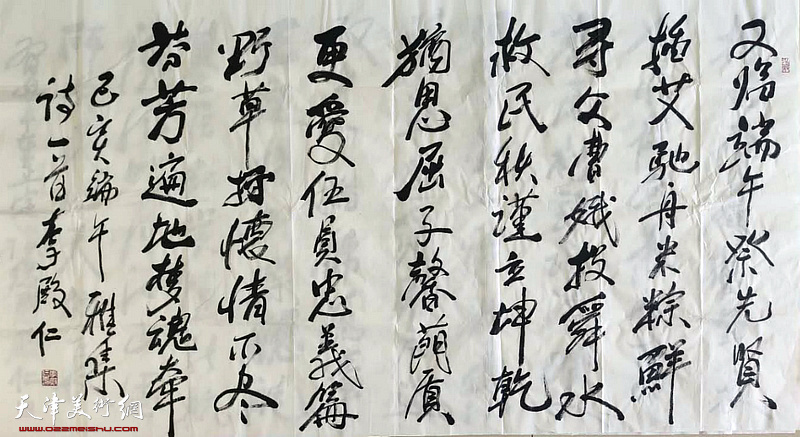 又临端午祭先贤
插艾驰舟米粽鲜
寻父曹娥投舜水
救民秋瑾立坤乾
犹思屈子馨兰质
更爱伍員忠義篇
野草抒懷情不尽
芬芳遍地梦魂牵
己亥端午雅集
诗一首李殿仁
天津美術網
www.022meishu.com